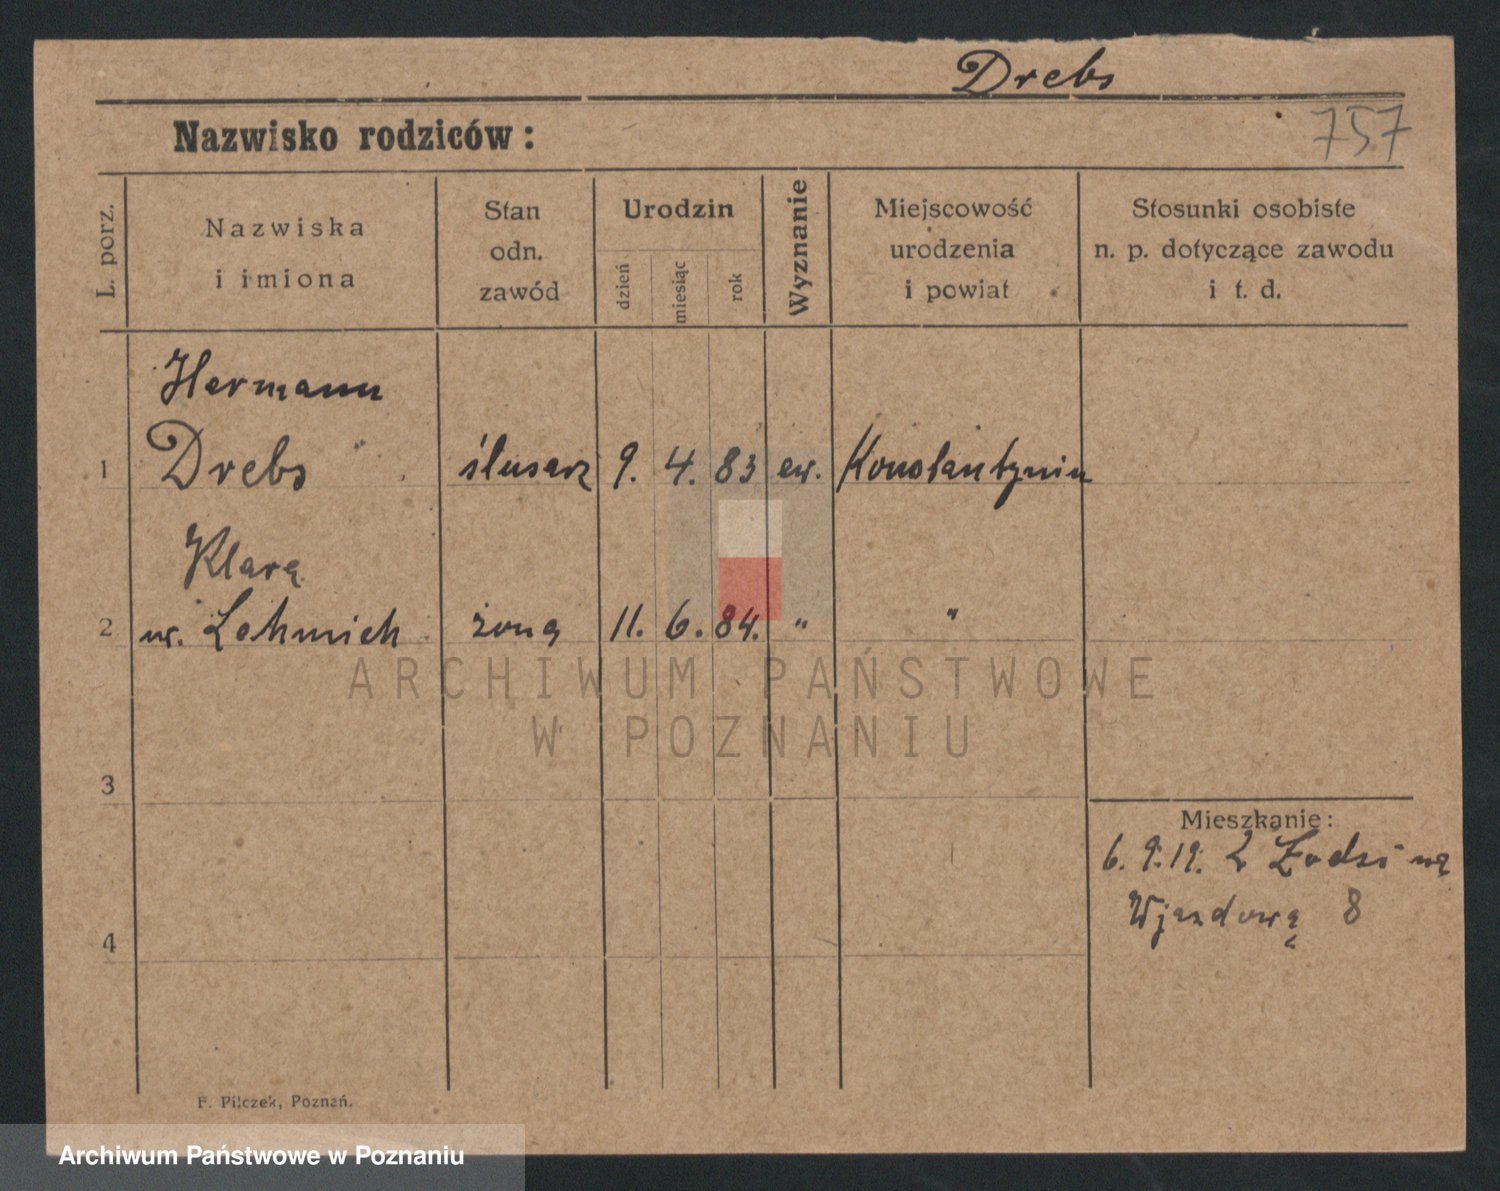 Drebs
757
Nazwisko rodziców:
L. porz.
Nazwiska
i imiona
Stan
odn.
zawód
Urodzin
dzień
miesiąc
rok
Wyznanie
Miejscowość
urodzenia
i powiat
Stosunki osobiste
n. p. dotyczące zawodu
i t. d.
Hermann
1 Drebs ślusarz 9. 4. 83 ew. Konstantyniu
Klara
2 żona 11. 6. 84. " "
ARCHIWUM PAŃSTWOWE
W POZNANIU
3
Mieszkanie:
6. 9. 19. Z Łodzi
Wjazdowa 8
4
F. Pilczek, Poznań.
Archiwum Państwowe w Poznaniu